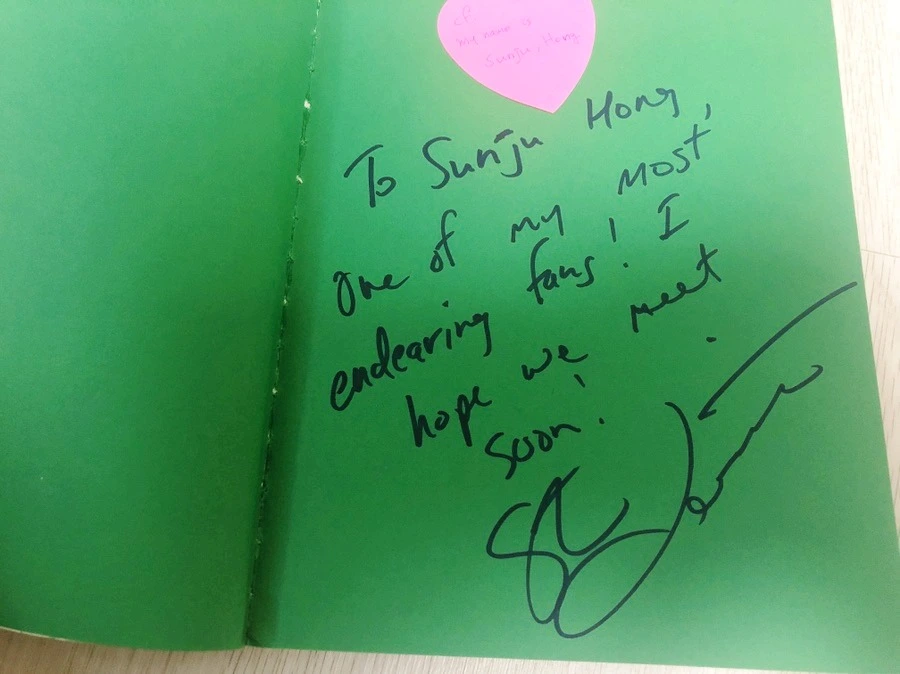 cf.
my name is
Sunju, Hong
To Sunju Hong,
One of my most
endearing fans! I
hope we meet
soon!